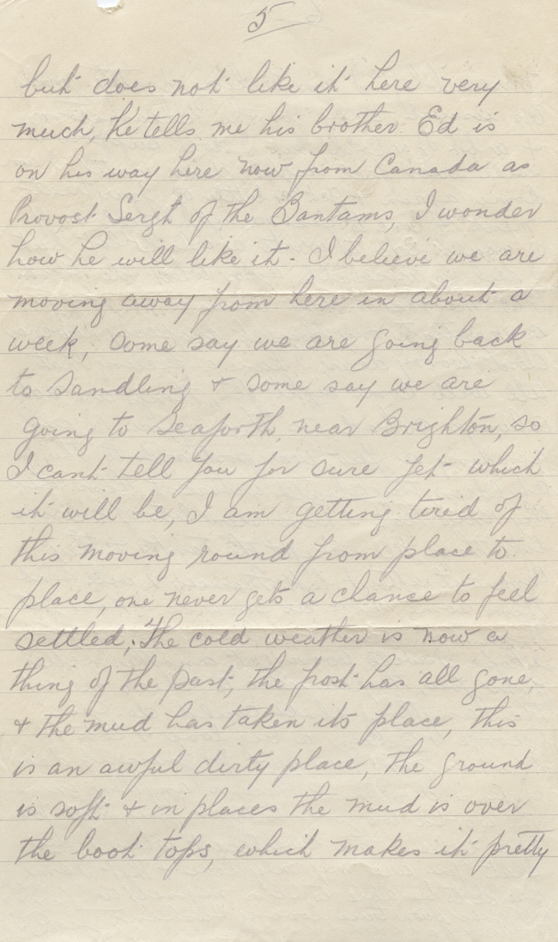 5
but does not like it here very
much, he tells me his brother Ed is
on his way here now from Canada as
Provost Sergt of the Bantams, I wonder
how he will like it - I believe we are
moving away from here in about a
week, some say we are going back
to Sandling & some say we are
going to Seaforth, near Brighton, so
I cant tell you for sure yet which
it will be, I am getting tired of
this moving round from place to
place, one never gets a chance to feel
settled, The cold weather is now a
thing of the past, the frost has all gone,
& the mud has taken its place, this
is an awful dirty place, the ground
is soft & in places the mud is over
the boot tops, which makes it pretty